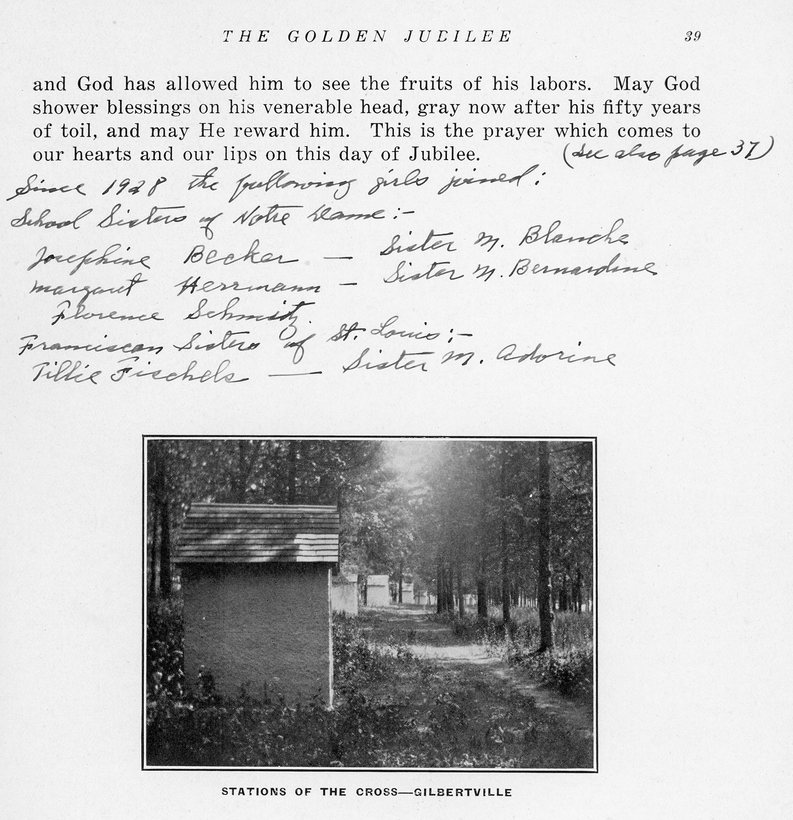 THE GOLDEN JUBILEE 39
and God has allowed him to see the fruits of his labors. May God
shower blessings on his venerable head, gray now after his fifty years
of toil, and may He reward him. This is the prayer which comes to
our hearts and our lips on this day of Jubilee. (See also page 37)
Since 1928 the following girls joined:
School Sisters of Notre Dame:-
Josephine Becker — Sister M. Blanche
Margaret Herrmann — Sister M. Bernardine
Florence Schmitz.
Franciscan Sisters of St. Louis:-
Tillie Fischels — Sister M. Adorine
STATIONS OF THE CROSS—GILBERTVILLE